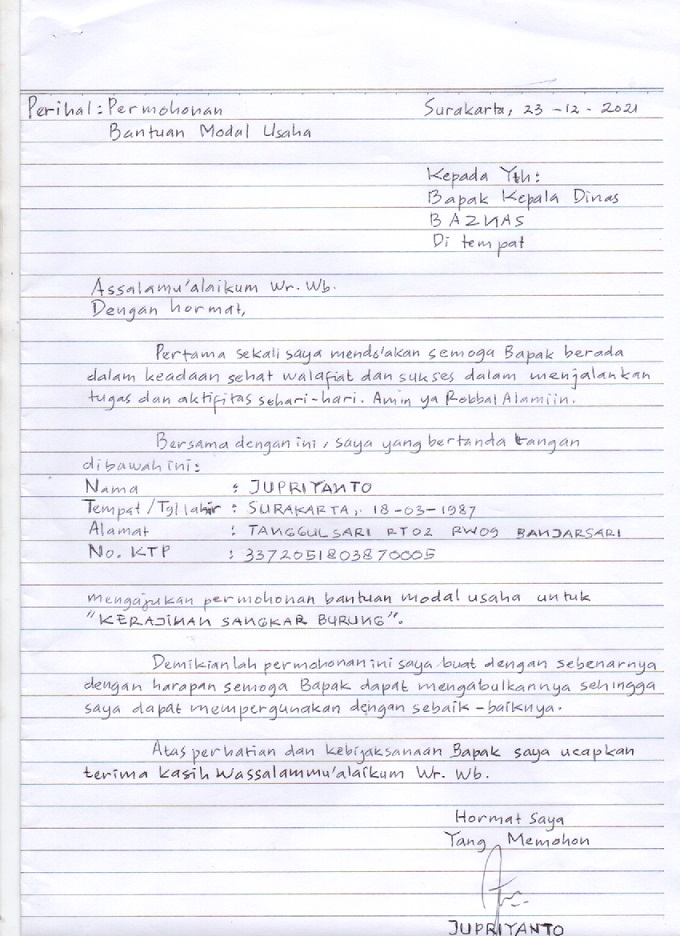 Perihal: Permohonan
Surakarta, 23-12-2021
Bantuan Modal Usaha
Kepada Yth:
Bapak Kepala Dinas
BAZNAS
Di tempat
Assalamu'alaikum Wr. Wb.
Dengan hormat,
Pertama sekali saya mendo'akan semoga Bapak berada
dalam keadaan sehat walafiat dan sukses dalam menjalankan
tugas dan aktifitas sehari-hari. Amin ya Robbal Alamiin.
Bersama dengan ini, saya yang bertanda tangan
dibawah ini:
Nama : JUPRIYANTO
Tempat/Tgl lahir : SURAKARTA, 18-03-1987
Alamat : TANGGULSARI RT02 RW09 BANJARSARI
No. KTP : 3372051803870005
mengajukan permohonan bantuan modal usaha untuk
"KERAJINAN SANGKAR BURUNG".
Demikianlah permohonan ini saya buat dengan sebenarnya
dengan harapan semoga Bapak dapat mengabulkannya sehingga
saya dapat mempergunakan dengan sebaik-baiknya.
Atas perhatian dan kebijaksanaan Bapak saya ucapkan
terima kasih Wassalammu'alaikum Wr. Wb.
Hormat Saya
Yang Memohon
JUPRIYANTO